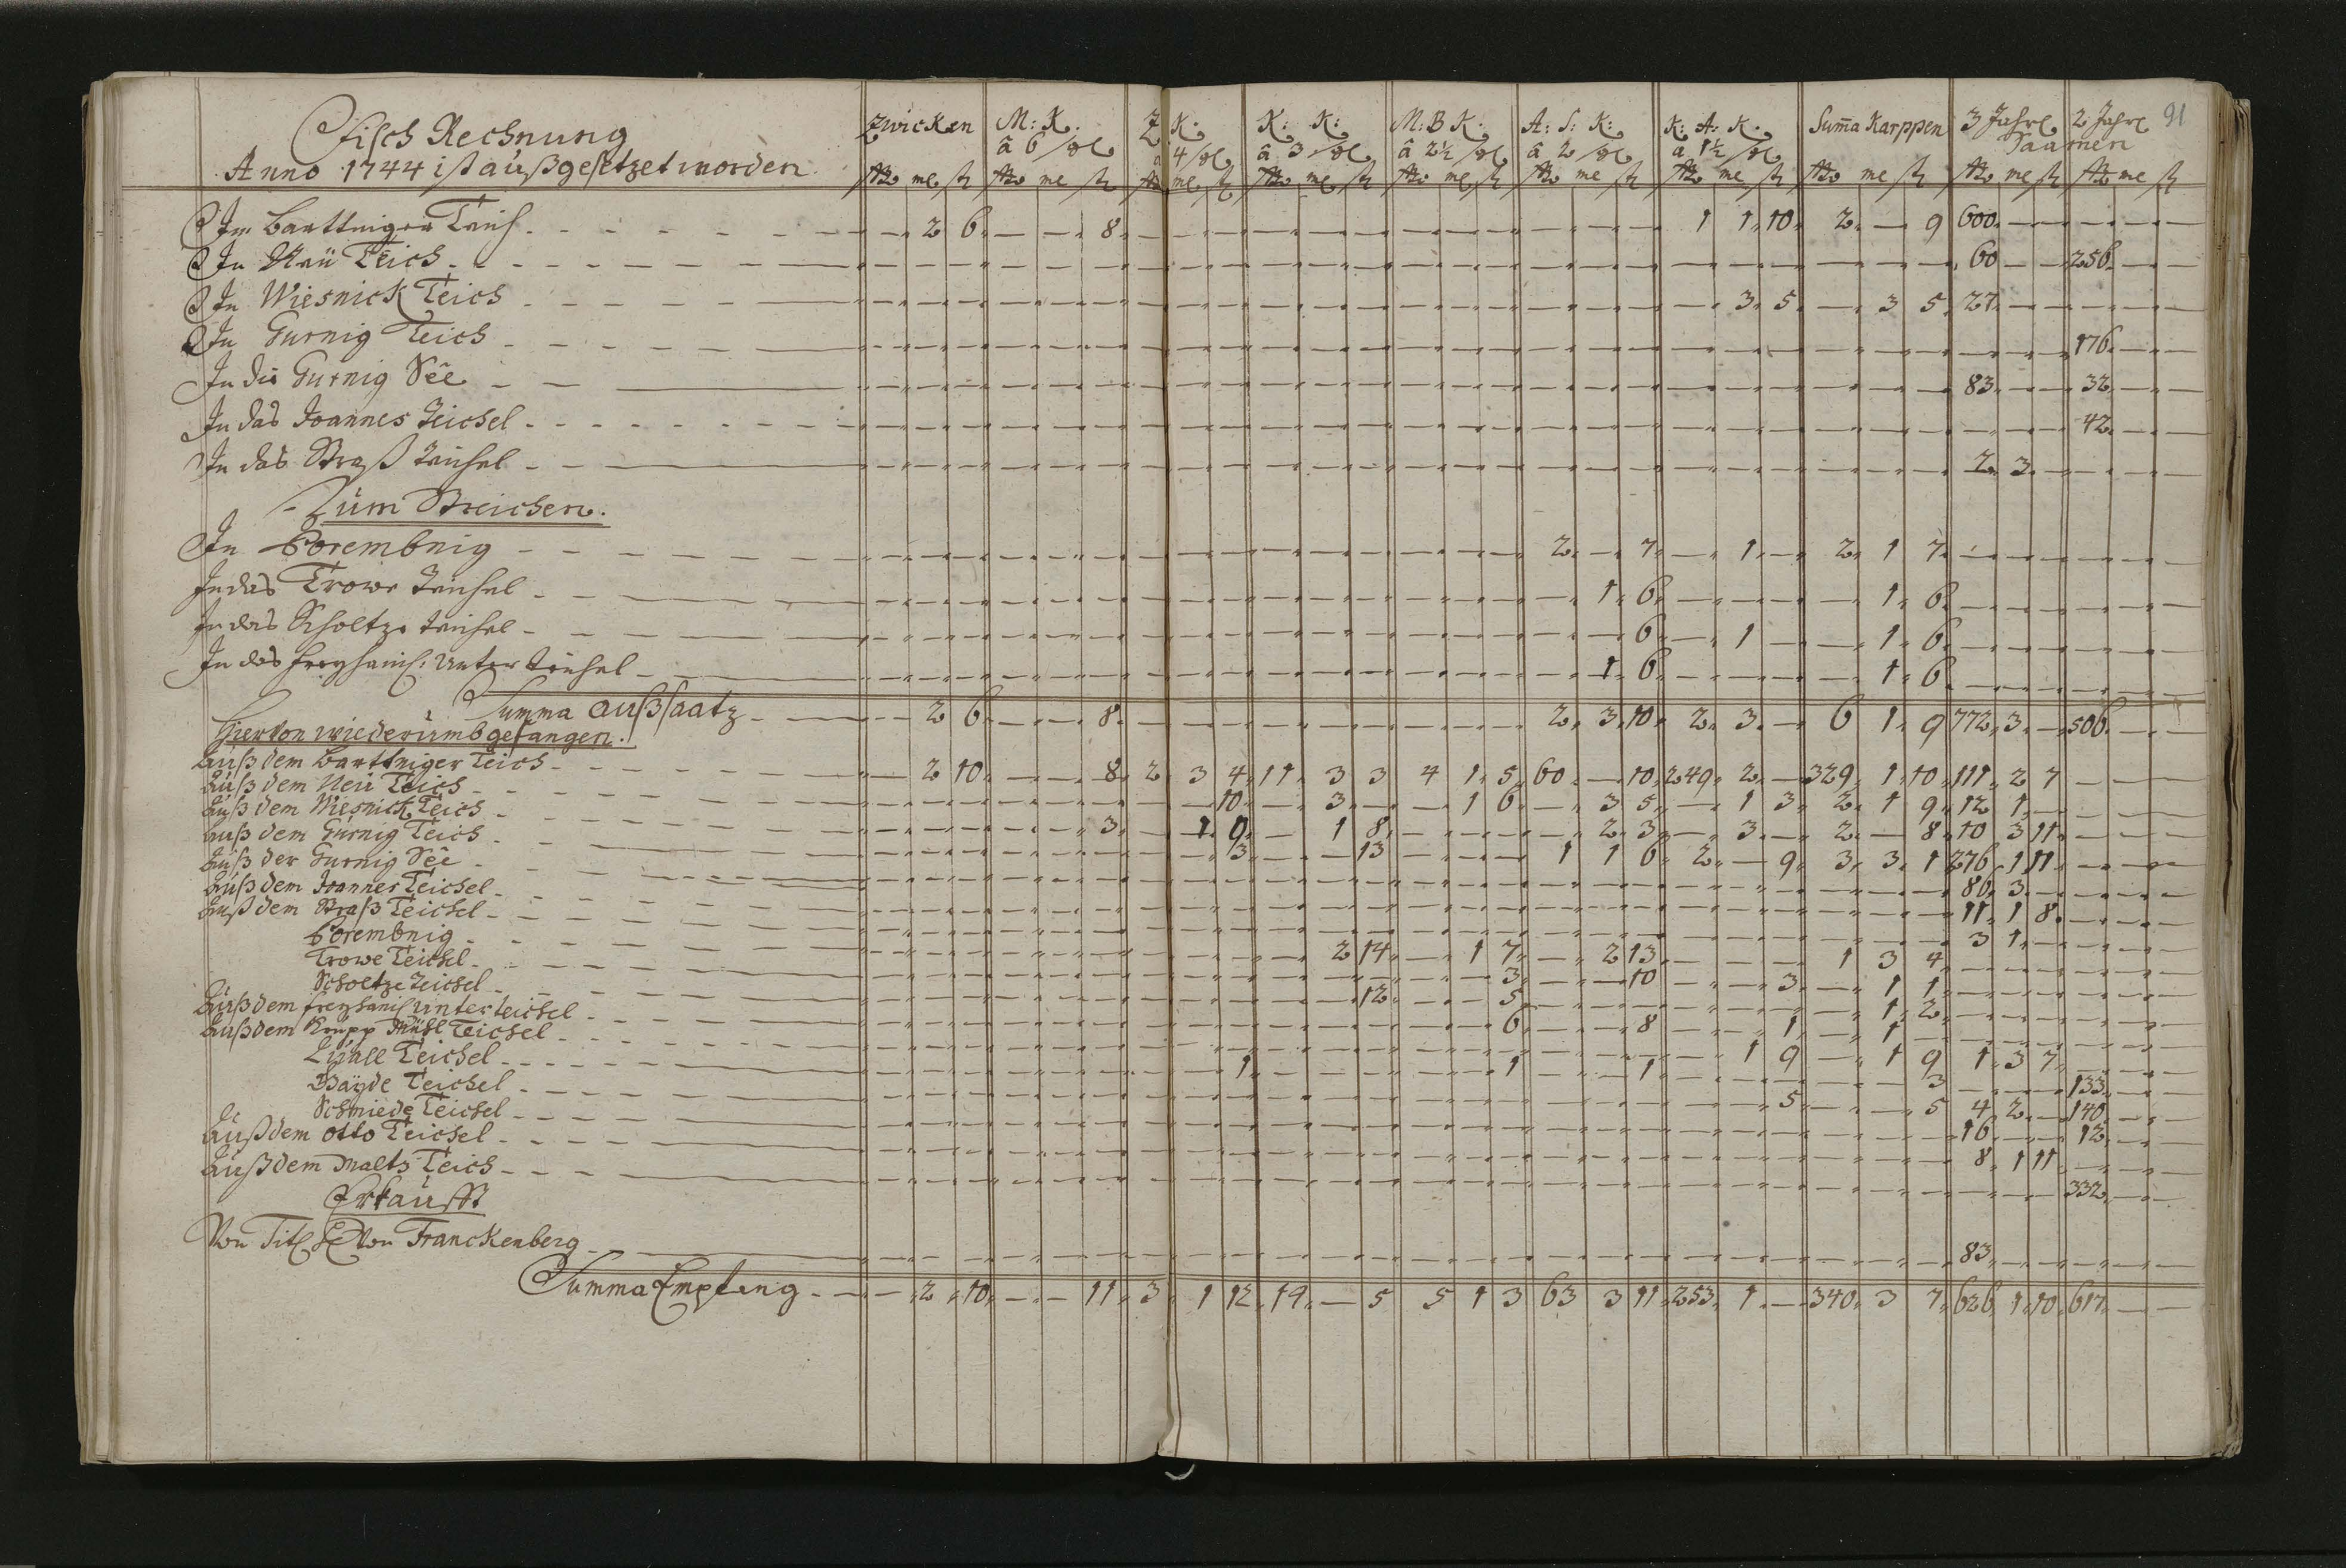 91
Fisch Rechnung
Anno 1744 ist außgesetzet worden
Zwicken | M: K. â 6 | Z K. a 4 | K: K: â 3 | M: B K. â 2½ | A: S: K: â 2 | K: A: K. a 1½ | Sum̄a Karppen | 3 Jahr. | 2 Jahr. Saamen
Im Barttniger Teich - 2 6 - - 8 - 1 1 10 2 - 9 600
In Neü Teich - 60 - - 256
In Wiesnick Teich - 3 5 - 3 5 27
In Gurnig Teich - 176
In die Gurnig See - 83 - - 32
In das Joannes Teichel - 42
In das Straß Teichel - 2 3
Züm Streichen.
In Porembnig - 2 - 7 - 1 - 2 1 7
In das Trowe Teichel - 1 6 - 1 6
In das Scholtze Teichel - 6 - 1 - - 1 6
In das freyhanis: Unter Teichel - 1 6 - 1 6
Summa Außsaatz - 2 6 - - 8 - 2 3 10 2 3 - 6 1 9 772 3 - 506
Hiervon wiederümb gefangen.
Auß dem Barttniger Teich - 2 10 - - 8 2 3 4 11 3 3 4 1 5 60 - 10 249 2 - 329 1 10 111 2 7
Auß dem Neü Teich - 10 - 3 - - 1 6 - 3 5 - 1 3 2 1 9 12 1
Auß dem Wiesnick Teich - 3 - 1 0 - 1 8 - 2 3 - 3 - 2 - 8 10 3 11
Auß dem Gürnig Teich - 3 - - 13 - 1 1 6 2 - 9 3 3 1 276 1 11
Auß der Gurnig See - 86 3
Auß dem Joannes Teichel - 11 1 8
Auß dem Straß Teichel - 3 1
Porembnig - 2 14 - 1 7 - 2 13 - 1 3 4
Trowe Teichel - 3 - - 10 - - 3 - 1 1
Scholtze Teichel - 12 - - 5 - 1 2
Auß dem freyhanis Unterteichel - 6 - - 8 - - 1 - 1
Auß dem Krüpp Mühl Teichel - 1 9 - 1 9 1 3 7
Teichel - 1 - 1 - 1 - 3 - 133
Teichel - 5 - - 5 4 2 - 140
Schmiede Teichel - 16 - - 12
Auß dem Otto Teichel - 8 1 11
Auß dem Maltz Teich - 332
Erkaufft
Von Tit: von Franckenberg - 83
Summa Empfang - 2 10 - - 11 3 1 12 19 - 5 5 1 3 63 3 11 253 1 - 340 3 7 626 1 10 617